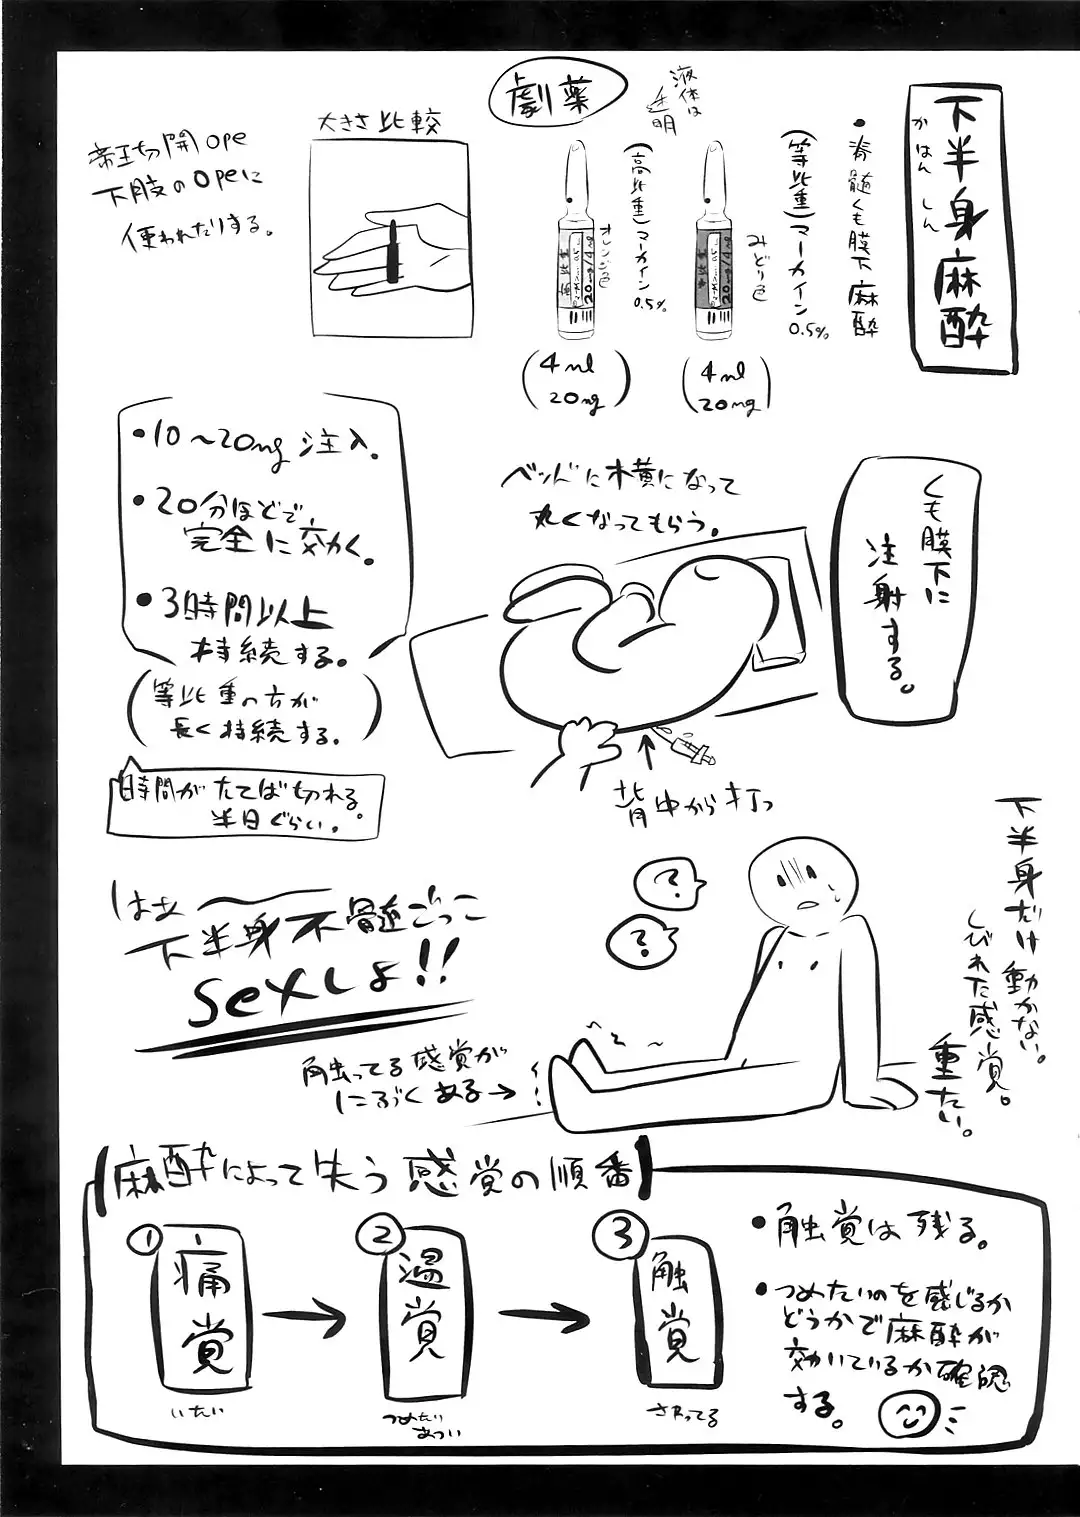 下半身麻酔
かはんしん
・脊髄くも膜下麻酔
(等比重)マーカイン0.5%
みどり色
液体は
透明
(高比重)マーカイン0.5%
オレンジ色
劇薬
20mg/4ml
4ml
20mg
4ml
20mg
大きさ比較
帝王切開ope
下肢のopeに
使われたりする。
くも膜下に
注射する。
ベッドに横になって
丸くなってもらう。
背中から打つ
・10〜20mg注入。
・20分ほどで
完全に効く。
・3時間以上
持続する。
(等比重の方が
長く持続する。)
時間がたてば切れる。
半日ぐらい。
はあ〜
下半身不髄ごっこ
sexしよ!!
?
?
下半身だけ動かない。
しびれた感覚。
重たい。
触ってる感覚が
にぶくある→
麻酔によって失う感覚の順番
①痛覚
いたい
②温覚
つめたい
あつい
③触覚
さわってる
・触覚は残る。
・つめたいのを感じるか
どうかで麻酔が
効いているか確認
する。